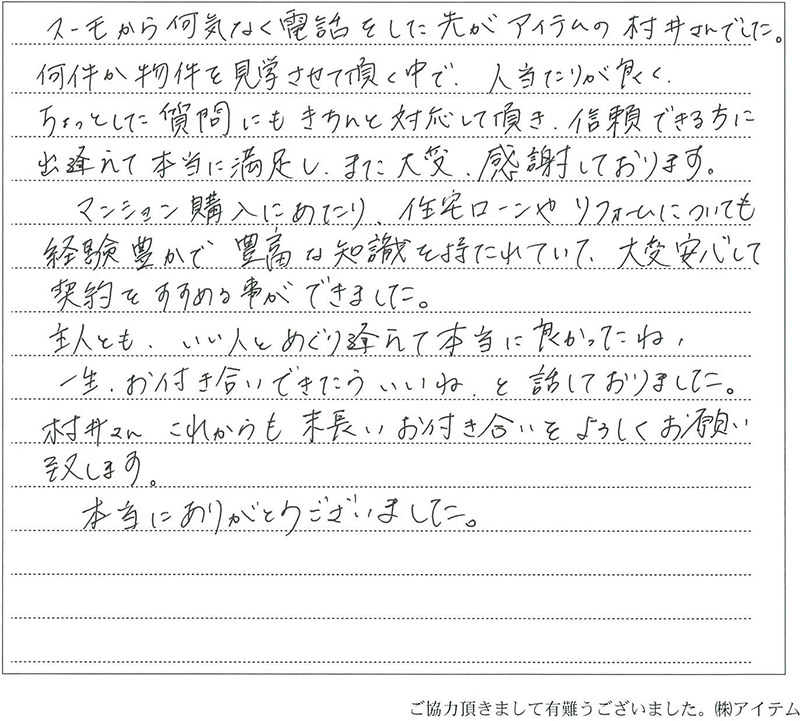 スーモから何気なく電話をした先がアイテムの村井さんでした。
何件か物件を見学させて頂く中で、人当たりが良く、
ちょっとした質問にもきちんと対応して頂き、信頼できる方に
出逢えて本当に満足し、また大変、感謝しております。
マンション購入にあたり、住宅ローンやリフォームについても
経験豊かで豊富な知識を持たれていて、大変安心して
契約をすすめる事ができました。
主人とも、いい人とめぐり逢えて本当に良かったね、
一生、お付き合いできたらいいね、と話しておりました。
村井さんこれからも末長いお付き合いをよろしくお願い
致します。
本当にありがとうございました。
ご協力頂きまして有難うございました。㈱アイテム